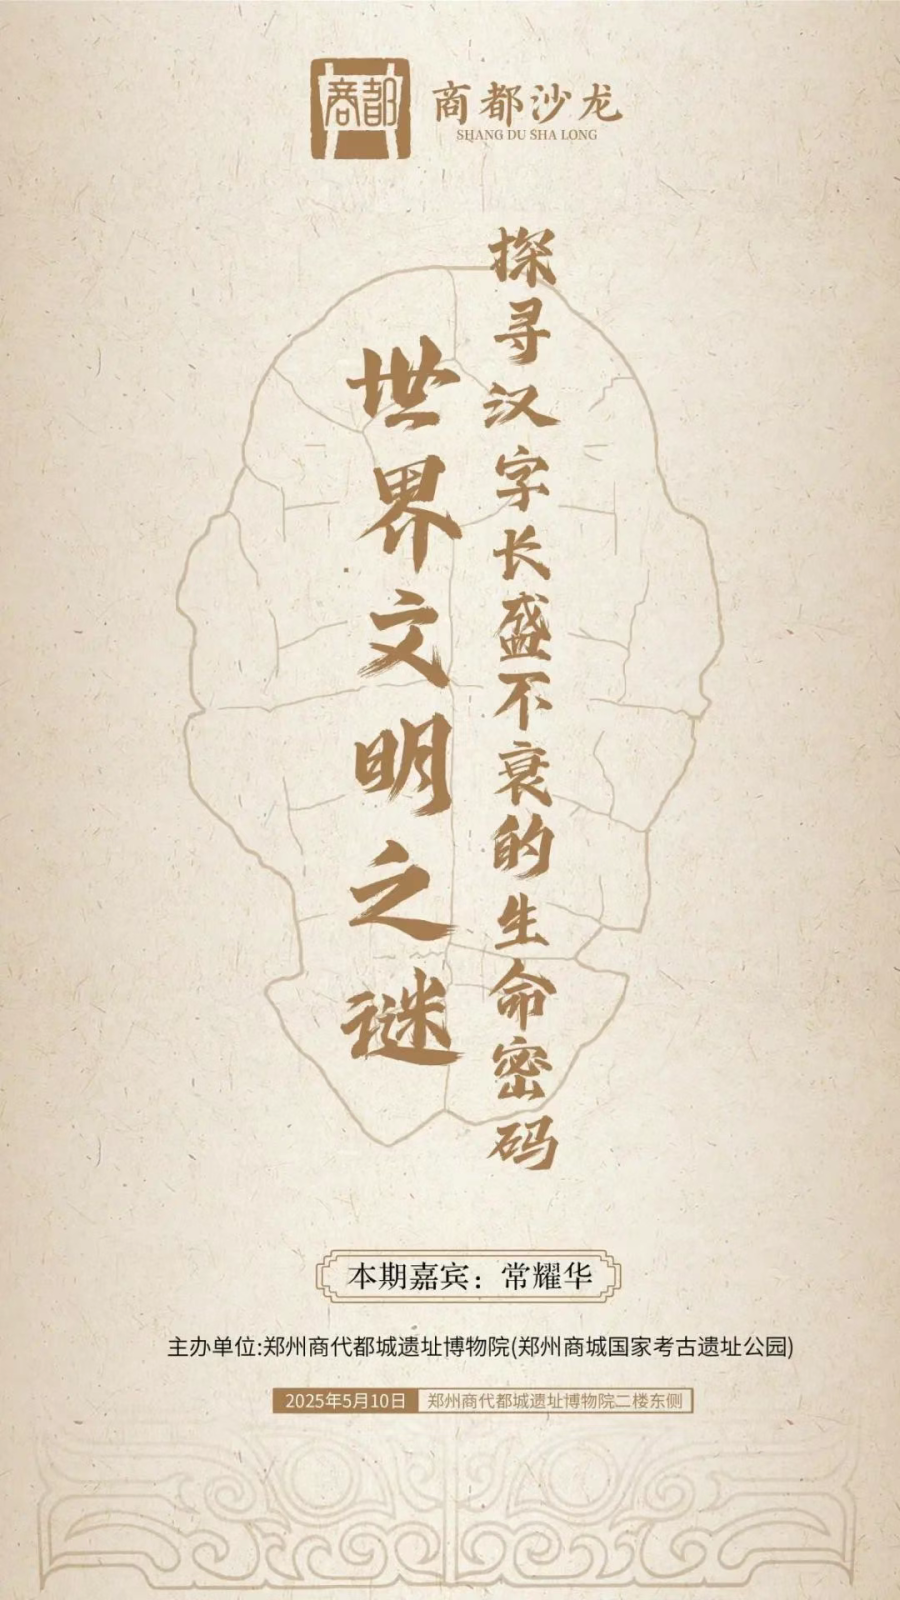 商都
商都沙龙
SHANG DU SHA LONG
探寻汉字长盛不衰的生命密码
世界文明之谜
本期嘉宾：常耀华
主办单位:郑州商代都城遗址博物院(郑州商城国家考古遗址公园)
2025年5月10日 郑州商代都城遗址博物院二楼东侧